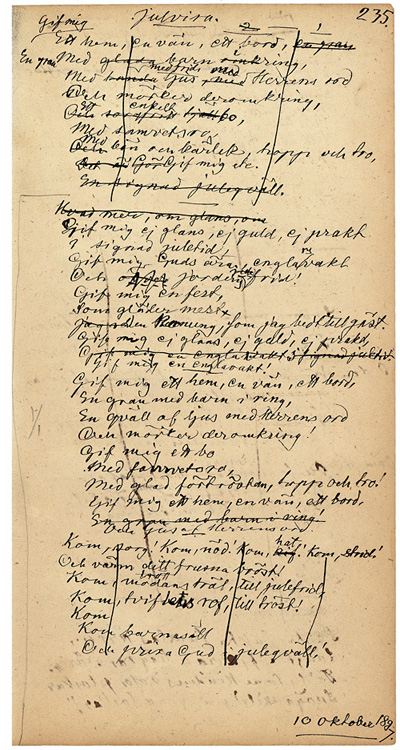 235.
julvisa.
2 1
Gif mig
Ett hem, en vän, ett bord, en gran
En gran Med glada barn omkring,
Med ljus, med Herrens ord
Och mörker deromkring,
Ett enkelt bo,
Med samvetsro,
Med bön och kärlek, hopp och tro,
Gif mig etc.
En signad juleqväll.
Hvad mer, om glans, om
Gif mig ej glans, ej guld, ej prakt
I signad juletid,
Gif mig Guds ära, englavakt
Och öfver jorden frid!
Gif mig en fest,
Som gläder mest
den Konung, som jag bedt till gäst.
Gif mig ej glans, ej guld, ej prakt,
Gif mig en englavakt I signad jultid
Gif mig en englavakt!
Gif mig ett hem, en vän, ett bord,
En gran med barn i ring,
En qväll af ljus med Herrens ord
Och mörker deromkring!
Gif mig ett bo
Med samvetsro,
Med glad förtröstan, hopp och tro!
Gif mig ett hem, en vän, ett bord,
En gran med barn i ring!
Och ljus af Herrens ord.
Kom, sorg! Kom, nöd! Kom, hat, kom, strid!
Och värm ditt frusna bröst!
Kom, mödans träl, till julefrid,
Kom, tviflets rof, till tröst!
Kom
Kom barnasält
Och prisa Gud juleqväll!
10 Oktober 1887.